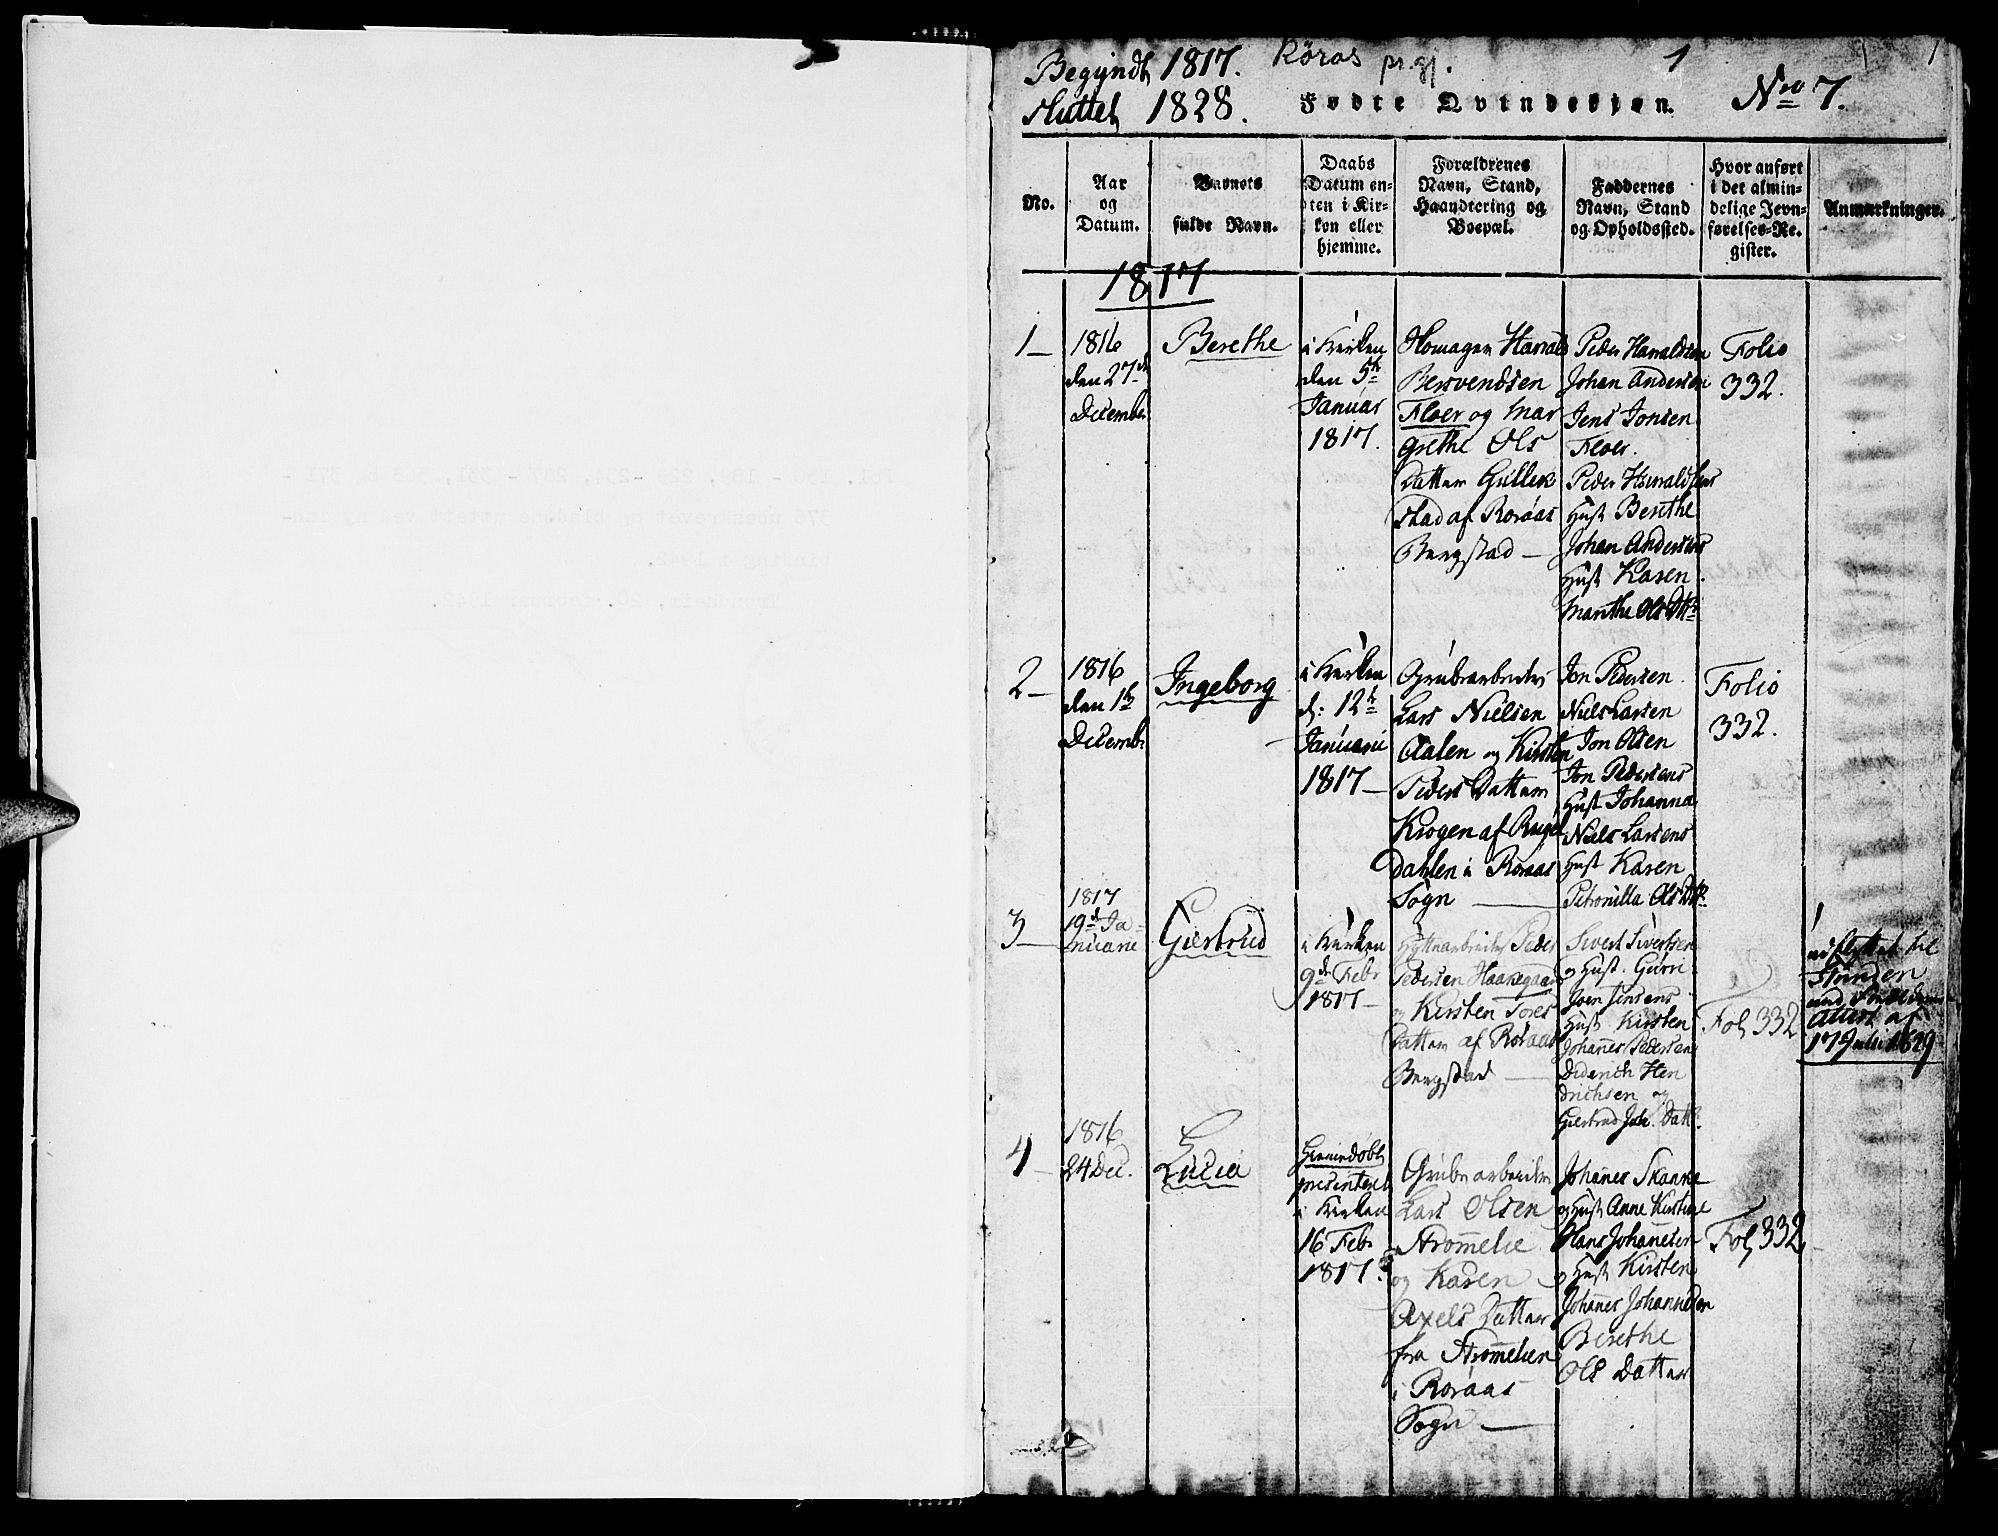 Begyndt 1817. Röros pr.gj. 1 1
Sluttet 1828. Fødte Qvindekjøn. No 7.
No.
Aar
og
Datum.
Barnets
fulde Navn.
Daabs
Datum en-
ten i Kir-
ken eller
hjemme.
Forældrenes
Navn, Stand,
Haandtering og
Boepæl.
Faddernes
Navn, Stand
og Opholdssted.
Hvor anført
i det almin-
delige Jevn-
førelses-Re-
gister.
Anmærkninger.
1817
1
1816
den 27de
December
Berethe
i Kirken
den 5te
Januar
1817.
Homager Harrald
Bersvendsen
Floer og Mar
grethe Ols
Datter Gullik
stad af Røraas
Bergstad
Peder Harraldsen
Johan Andersen
Jens Jonsen
Floer.
Peder Harraldsens
Hust. Berethe
Johan Andersens
Hust. Karen
Marithe Ols Dtr
Folio
332.
2
1816
den 1te
Decembr
Ingeborg
i Kirken
d: 12te
Januarii
1817
Grubearbeider
Lars Nielsen
Aalen og Kirsten
Peders Datter
Krogen af
Dahlen i Røraas
Sogn
Jon Pedersen
Niels Larsen
Jon Olsen
Jon Pedersens
Hust Johanna
Niels Larsens
Hust Karen
Petronilla Ols Dtr
Folio
332.
3
1817
19de Ja-
nuarie
Giertrud
i Kirken
9de Febr
1817
Hyttearbeider Peder
Pedersen Haanegaard
og Kirsten Tores
Datter af Røraas
Bergstad
Sivert Sivertsen
og Hust. Gurri
Joen Jensens
Hust Kirsten
Johannes Pedersen
Diderich Hen
drichsen og
Giertrud Joh. Datt.
Fol 332
udflyttet til
Strinden
Attest af
17 Juli 1829
4
1816
24 Dec.
Lucia
Hiemmedøbt
presenteret
i Kirken
16 Febr
1817.
Grubearbeider
Lars Olsen
Strømmelie
og Karen
Axels Datter
fra Strømelien
i Røraas
Sogn
Johanes Skanke
og Hust Anne Kirstine
Hans Johanesen
og Hust Kirsten
Johanes Johannesen
Berethe
Ols Datter
Fol 332